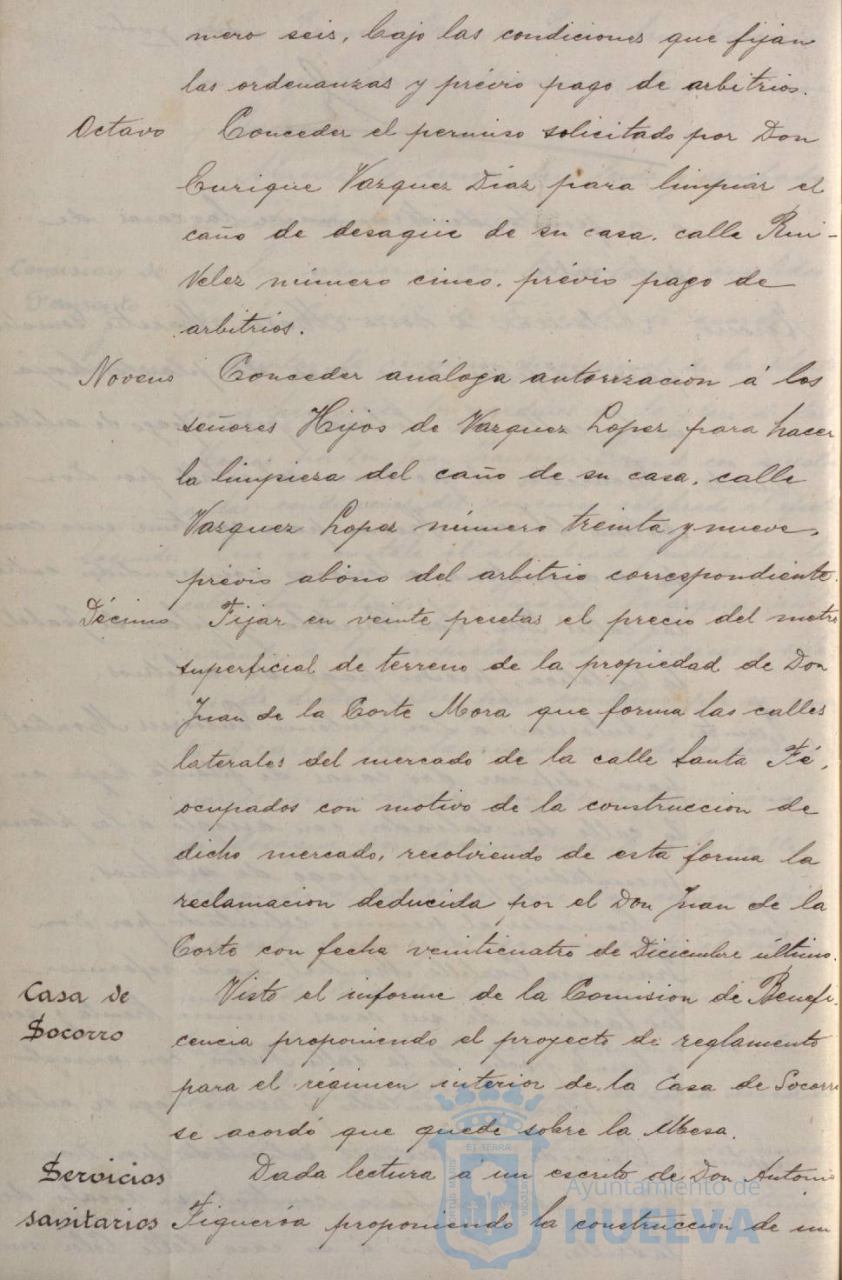 mero seis, bajo las condiciones que fijan
las ordenanzas y prévio pago de arbitrios.
Octavo Conceder el permiso solicitado por Don
Enrique Vazquez Díaz para limpiar el
caño de desagüe de su casa, calle Rui-
Velez número cinco, prévio pago de
arbitrios.
Noveno Conceder análoga autorizacion á los
señores Hijos de Vazquez Lopez para hacer
la limpieza del caño de su casa, calle
Vazquez Lopez número treinta y nueve,
prévio abono del arbitrio correspondiente.
Décimo Fijar en veinte pesetas el precio del metro
superficial de terreno de la propiedad de Don
Juan de la Corte Mora que forma las calles
laterales del mercado de la calle Santa Fé,
ocupados con motivo de la construccion de
dicho mercado, resolviendo de esta forma la
reclamacion deducida por el Don Juan de la
Corte con fecha veinticuatro de Diciembre último.
Casa de Socorro
Visto el informe de la Comision de Benefi-
cencia proponiendo el proyecto de reglamento
para el régimen interior de la Casa de Socorro
se acordó que quede sobre la Mesa.
Servicios sanitarios
Dada lectura á un escrito de Don Antonio
Figueroa proponiendo la construccion de un
Ayuntamiento de
HUELVA